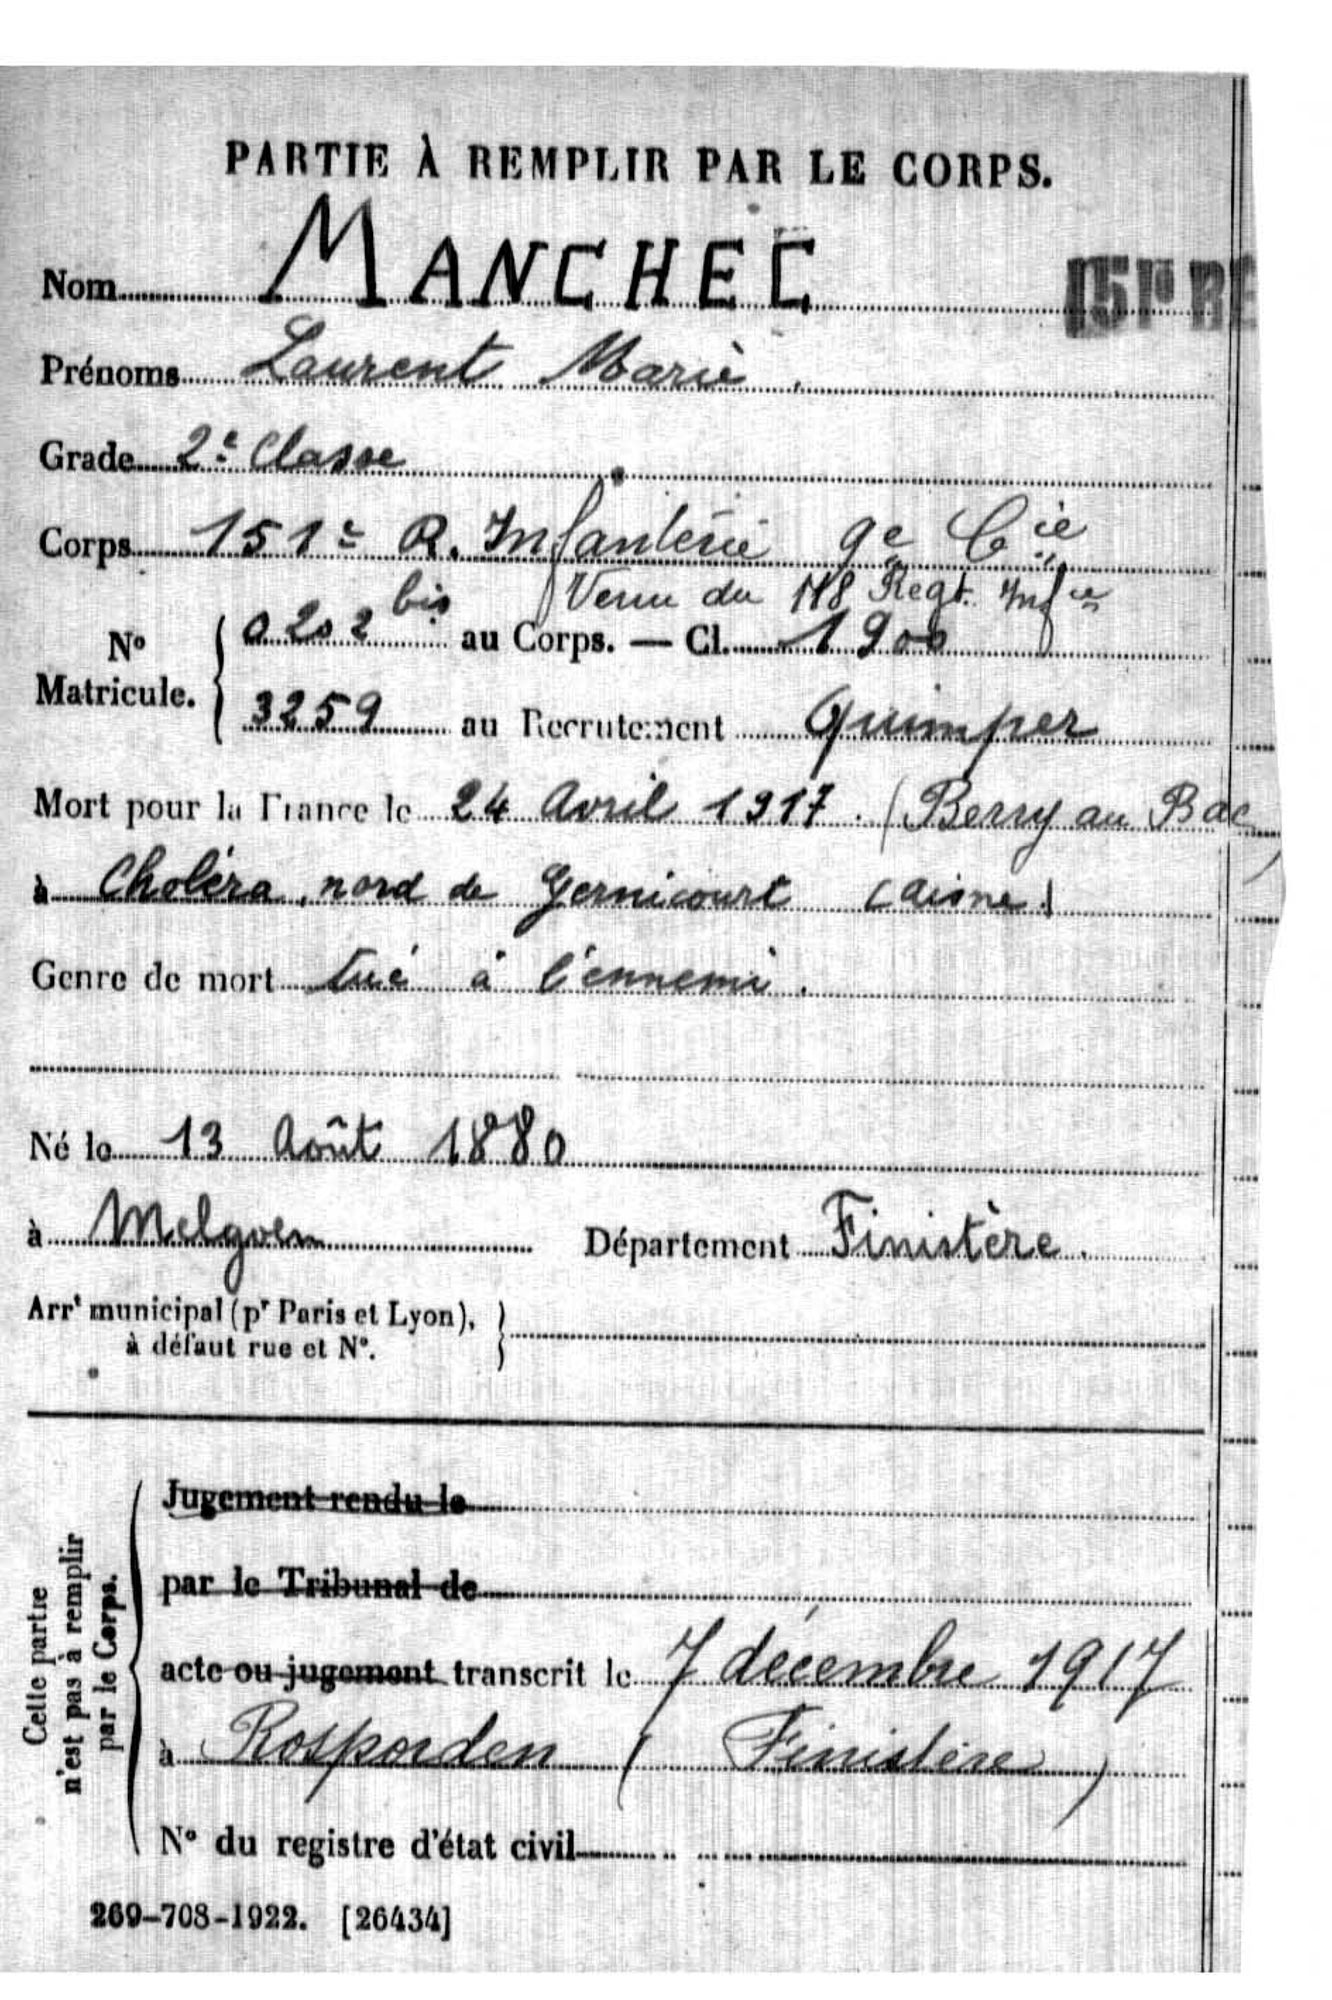 PARTIE À REMPLIR PAR LE CORPS.
Nom MANCHEC
151e RE
Prénoms Laurent Marie.
Grade 2e Classe
Corps 151e R. Infanterie 9e Cie
Venu du 118 Regt. Infie
No Matricule. 0202 bis au Corps. — Cl. 1900
3259 au Recrutement Quimper
Mort pour la France le 24 Avril 1917. (Berry au Bac)
à Choléra, nord de Gernicourt (Aisne)
Genre de mort Tué à l'ennemi.
Né le 13 Août 1880
à Melgven Département Finistère.
Arrt municipal (pr Paris et Lyon),
à défaut rue et No.
Cette partie
n'est pas à remplir
par le Corps.
Jugement rendu le
par le Tribunal de
acte ou jugement transcrit le 7 décembre 1917
à Rosporden (Finistère)
No du registre d'état civil
269-708-1922. [26434]